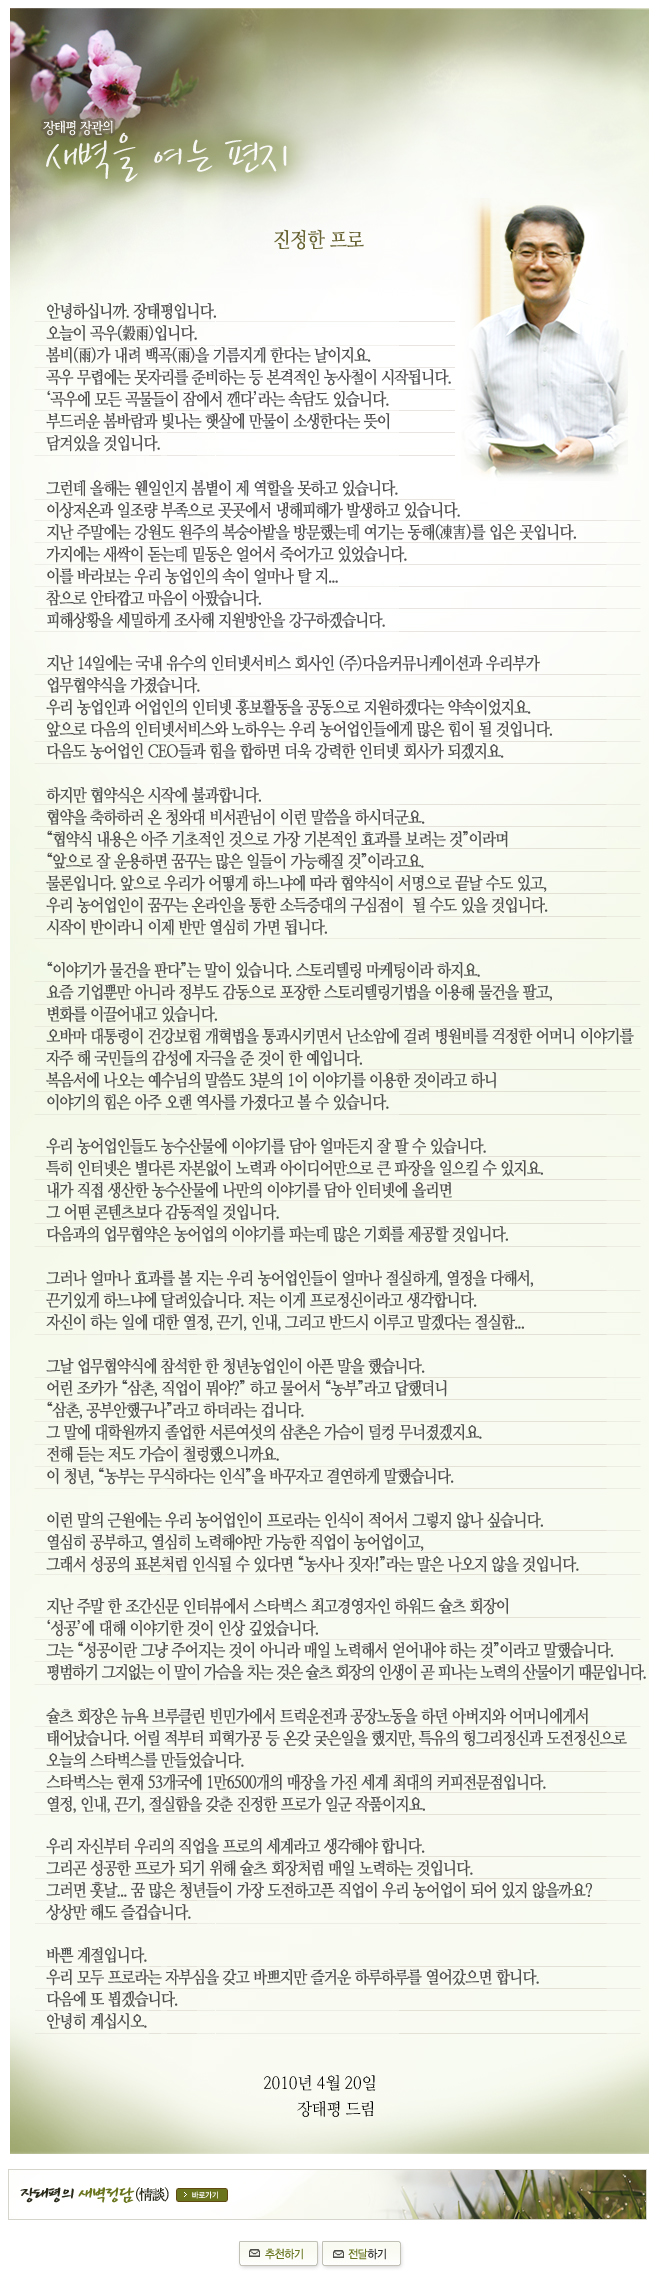 장태평 장관의
새벽을 여는 편지
진정한 프로
안녕하십니까. 장태평입니다.
오늘이 곡우(穀雨)입니다.
봄비(雨)가 내려 백곡(雨)을 기름지게 한다는 날이지요.
곡우 무렵에는 못자리를 준비하는 등 본격적인 농사철이 시작됩니다.
‘곡우에 모든 곡물들이 잠에서 깬다’라는 속담도 있습니다.
부드러운 봄바람과 빛나는 햇살에 만물이 소생한다는 뜻이
담겨있을 것입니다.
그런데 올해는 웬일인지 봄볕이 제 역할을 못하고 있습니다.
이상저온과 일조량 부족으로 곳곳에서 냉해피해가 발생하고 있습니다.
지난 주말에는 강원도 원주의 복숭아밭을 방문했는데 여기는 동해(凍害)를 입은 곳입니다.
가지에는 새싹이 돋는데 밑동은 얼어서 죽어가고 있었습니다.
이를 바라보는 우리 농업인의 속이 얼마나 탈 지...
참으로 안타깝고 마음이 아팠습니다.
피해상황을 세밀하게 조사해 지원방안을 강구하겠습니다.
지난 14일에는 국내 유수의 인터넷서비스 회사인 (주)다음커뮤니케이션과 우리부가
업무협약식을 가졌습니다.
우리 농업인과 어업인의 인터넷 홍보활동을 공동으로 지원하겠다는 약속이었지요.
앞으로 다음의 인터넷서비스와 노하우는 우리 농어업인들에게 많은 힘이 될 것입니다.
다음도 농어업인 CEO들과 힘을 합하면 더욱 강력한 인터넷 회사가 되겠지요.
하지만 협약식은 시작에 불과합니다.
협약을 축하하러 온 청와대 비서관님이 이런 말씀을 하시더군요.
“협약식 내용은 아주 기초적인 것으로 가장 기본적인 효과를 보려는 것”이라며
“앞으로 잘 운용하면 꿈꾸는 많은 일들이 가능해질 것”이라고요.
물론입니다. 앞으로 우리가 어떻게 하느냐에 따라 협약식이 서명으로 끝날 수도 있고,
우리 농어업인이 꿈꾸는 온라인을 통한 소득증대의 구심점이 될 수도 있을 것입니다.
시작이 반이라니 이제 반만 열심히 가면 됩니다.
“이야기가 물건을 판다”는 말이 있습니다. 스토리텔링 마케팅이라 하지요.
요즘 기업뿐만 아니라 정부도 감동으로 포장한 스토리텔링기법을 이용해 물건을 팔고,
변화를 이끌어내고 있습니다.
오바마 대통령이 건강보험 개혁법을 통과시키면서 난소암에 걸려 병원비를 걱정한 어머니 이야기를
자주 해 국민들의 감성에 자극을 준 것이 한 예입니다.
복음서에 나오는 예수님의 말씀도 3분의 1이 이야기를 이용한 것이라고 하니
이야기의 힘은 아주 오랜 역사를 가졌다고 볼 수 있습니다.
우리 농어업인들도 농수산물에 이야기를 담아 얼마든지 잘 팔 수 있습니다.
특히 인터넷은 별다른 자본없이 노력과 아이디어만으로 큰 파장을 일으킬 수 있지요.
내가 직접 생산한 농수산물에 나만의 이야기를 담아 인터넷에 올리면
그 어떤 콘텐츠보다 감동적일 것입니다.
다음과의 업무협약은 농어업의 이야기를 파는데 많은 기회를 제공할 것입니다.
그러나 얼마나 효과를 볼 지는 우리 농어업인들이 얼마나 절실하게, 열정을 다해서,
끈기있게 하느냐에 달려있습니다. 저는 이게 프로정신이라고 생각합니다.
자신이 하는 일에 대한 열정, 끈기, 인내, 그리고 반드시 이루고 말겠다는 절실함...
그날 업무협약식에 참석한 한 청년농업인이 아픈 말을 했습니다.
어린 조카가 “삼촌, 직업이 뭐야?” 하고 물어서 “농부”라고 답했더니
“삼촌, 공부안했구나”라고 하더라는 겁니다.
그 말에 대학원까지 졸업한 서른여섯의 삼촌은 가슴이 덜컹 무너졌겠지요.
전해 듣는 저도 가슴이 철렁했으니까요.
이 청년, “농부는 무식하다는 인식”을 바꾸자고 결연하게 말했습니다.
이런 말의 근원에는 우리 농어업인이 프로라는 인식이 적어서 그렇지 않나 싶습니다.
열심히 공부하고, 열심히 노력해야만 가능한 직업이 농어업이고,
그래서 성공의 표본처럼 인식될 수 있다면 “농사나 짓자!”라는 말은 나오지 않을 것입니다.
지난 주말 한 조간신문 인터뷰에서 스타벅스 최고경영자인 하워드 슐츠 회장이
‘성공’에 대해 이야기한 것이 인상 깊었습니다.
그는 “성공이란 그냥 주어지는 것이 아니라 매일 노력해서 얻어내야 하는 것”이라고 말했습니다.
평범하기 그지없는 이 말이 가슴을 치는 것은 슐츠 회장의 인생이 곧 피나는 노력의 산물이기 때문입니다.
슐츠 회장은 뉴욕 브루클린 빈민가에서 트럭운전과 공장노동을 하던 아버지와 어머니에게서
태어났습니다. 어릴 적부터 피혁가공 등 온갖 궂은일을 했지만, 특유의 헝그리정신과 도전정신으로
오늘의 스타벅스를 만들었습니다.
스타벅스는 현재 53개국에 1만6500개의 매장을 가진 세계 최대의 커피전문점입니다.
열정, 인내, 끈기, 절실함을 갖춘 진정한 프로가 일군 작품이지요.
우리 자신부터 우리의 직업을 프로의 세계라고 생각해야 합니다.
그리곤 성공한 프로가 되기 위해 슐츠 회장처럼 매일 노력하는 것입니다.
그러면 훗날... 꿈 많은 청년들이 가장 도전하고픈 직업이 우리 농어업이 되어 있지 않을까요?
상상만 해도 즐겁습니다.
바쁜 계절입니다.
우리 모두 프로라는 자부심을 갖고 바쁘지만 즐거운 하루하루를 열어갔으면 합니다.
다음에 또 뵙겠습니다.
안녕히 계십시오.
2010년 4월 20일
장태평 드림
장태평의 새벽정담(情談) 바로가기
추천하기 전달하기